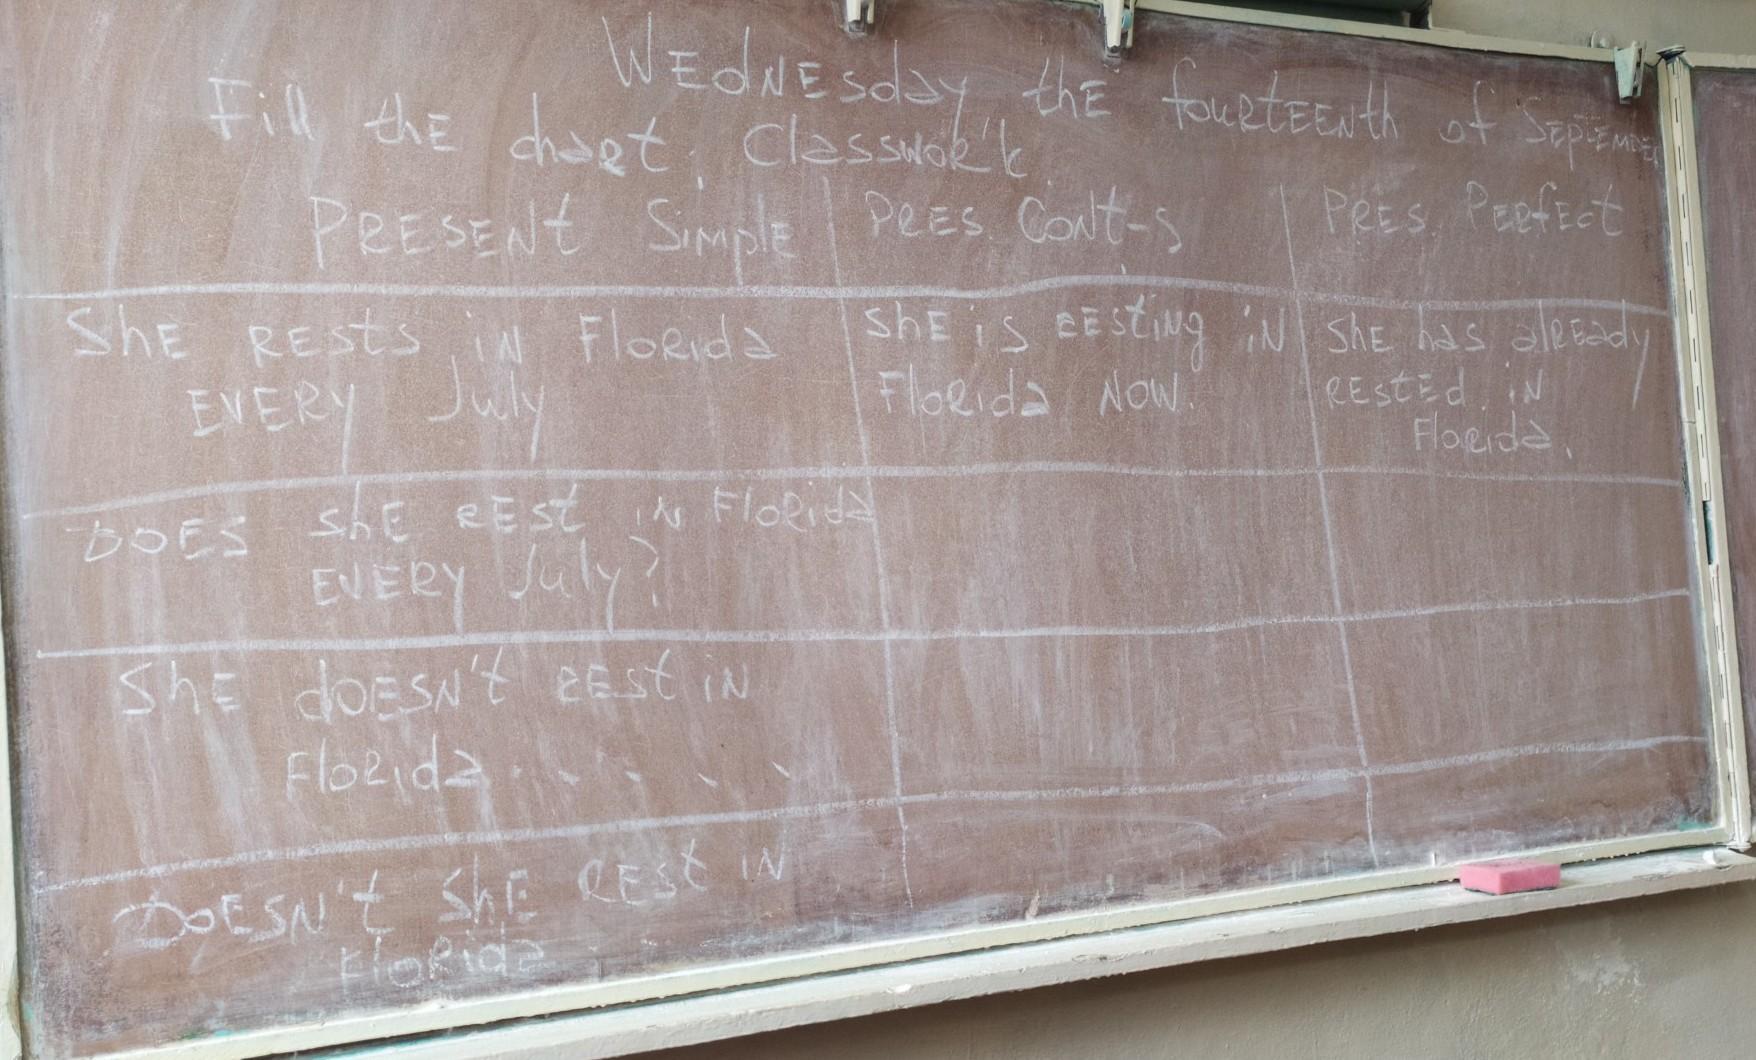 WEdNEsday thE fourteenth of September
Fill the chart. Classwork
Present Simple
Pres. Cont-s
Pres. Perfect
She rests in Florida
every July
She is resting in
Florida now.
She has already
rested in
Florida.
Does she rest in Florida
every July?
She doesn't rest in
Florida . . . . .
Doesn't she rest in
Florida . . .